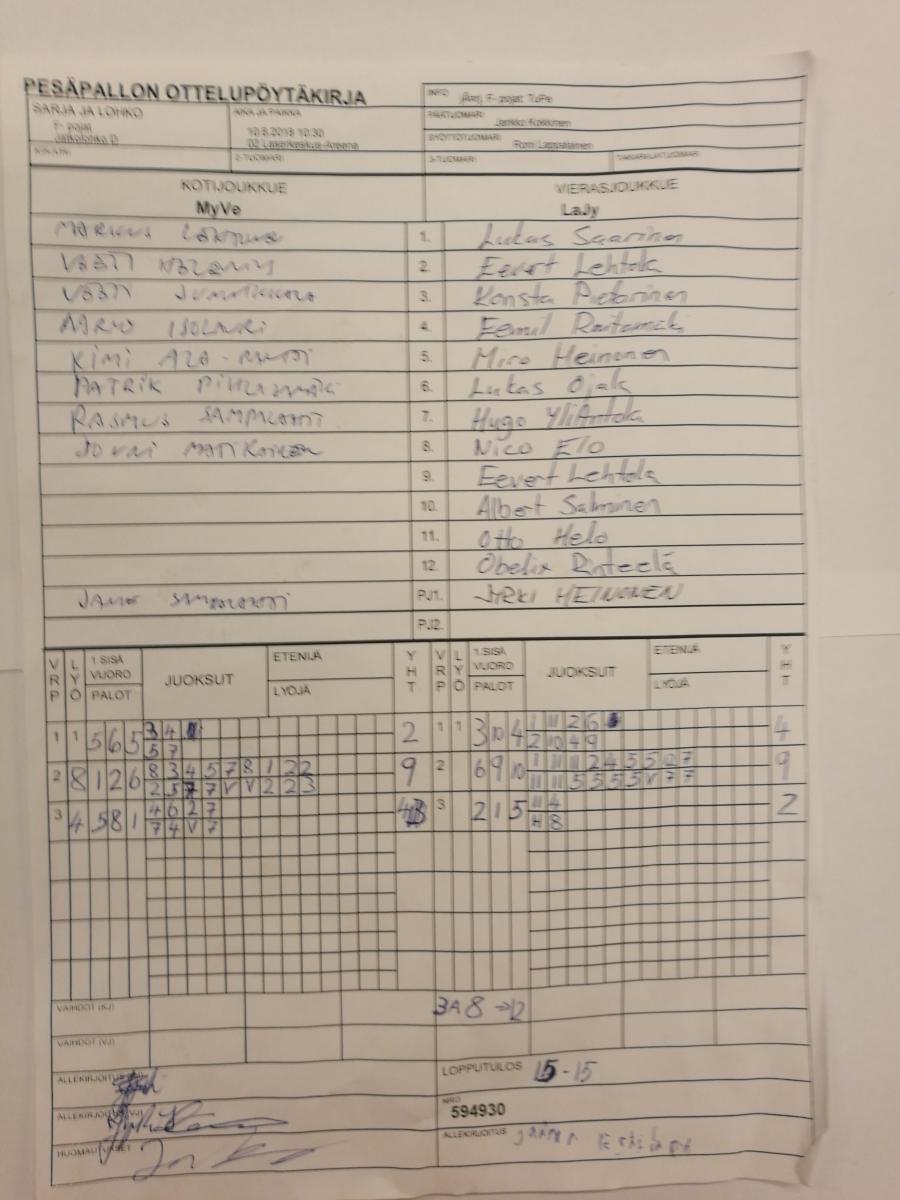 PESÄPALLON OTTELUPÖYTÄKIRJA
INFO Järj. F- pojat TuPe
SARJA JA LOHKO
F- pojat
Jatkolohko D
AIKA JA PAIKKA
10.6.2018 10:30
PÄÄTUOMARI
Jarkko Kokkinen
SYÖTTÖTUOMARI
Romi Lappalainen
2-TUOMARI
3-TUOMARI
TAKARAJATUOMARI
KOTIJOUKKUE
MyVe
VIERASJOUKKUE
LaJy
MARKUS 1. Lukas Saarinen
VEETI 2. Eevert Lehtola
VEETI 3. Konsta Pietarinen
AARMO ISOLAURI 4. Eemil Rautamäki
KIMI ALA- 5. Miro Heinonen
PATRIK PIHLAJAMÄKI 6. Lukas Ojala
RASMUS SAMMALAHTI 7. Hugo YliAntola
JOUNI MATIKAINEN 8. Nico Elo
9. Eevert Lehtola
10. Albert Salminen
11. Otto Helo
12. Obelix Rinteelä
SAMMALAHTI PJ1. JYRKI HEINONEN
PJ2.
VRP LYÖ 1. SISÄ VUORO PALOT JUOKSUT ETENIJÄ LYÖJÄ YHT VRP LYÖ 1. SISÄ VUORO PALOT JUOKSUT ETENIJÄ LYÖJÄ YHT
1 1 5 6 5 3 4 2 1 1 3 10 4 1 11 2 6 4
5 7 2 10 4 9
2 8 1 2 6 8 3 4 5 7 8 1 2 2 9 2 6 9 10 1 11 11 2 4 5 5 7 9
2 5 7 7 V V 2 2 3 11 11 5 5 5 5 V 7 7
3 4 5 8 1 4 6 2 7 4 3 2 1 5 11 4 2
7 4 V 7 8
VAIHDOT (KJ) 3A 8 → 12
VAIHDOT (VJ)
ALLEKIRJOITUS (KJ)
LOPPUTULOS 15 - 15
ALLEKIRJOITUS (VJ)
NRO
594930
HUOMAUTUKSET
ALLEKIRJOITUS